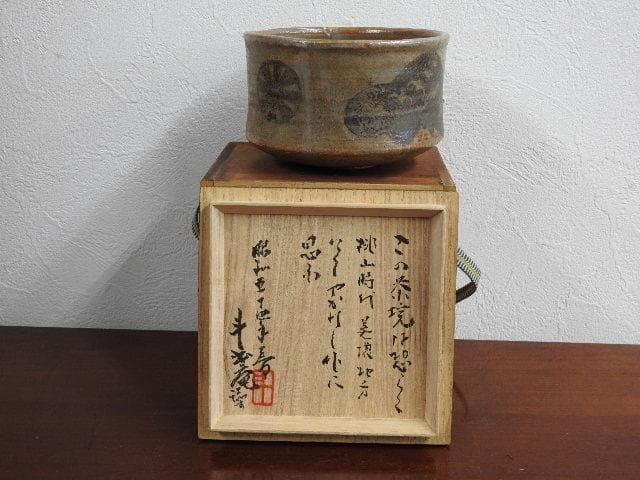 この茶埦は恐らく
桃山時代 美濃地方
にて やかれし作に
思ふ
昭和五十四年春
斗 庵